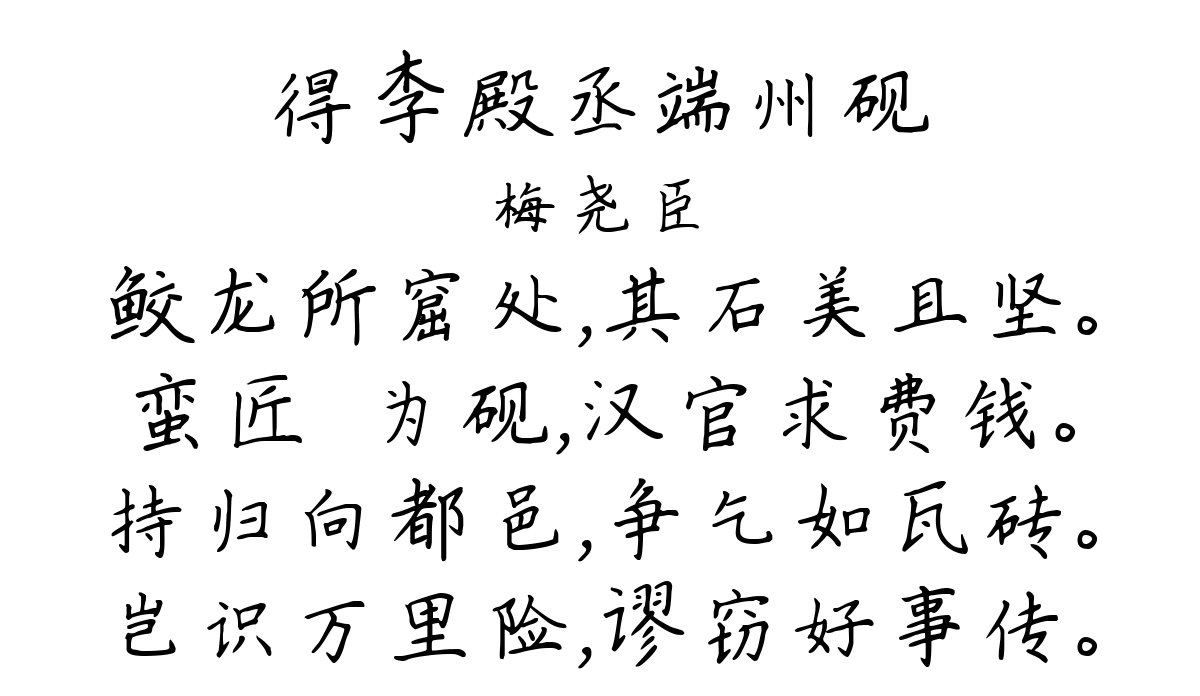 得李殿丞端州砚
梅尧臣
鲛龙所窟处,其石美且坚。
蛮匠 为砚,汉官求费钱。
持归向都邑,争乞如瓦砖。
岂识万里险,谬窃好事传。